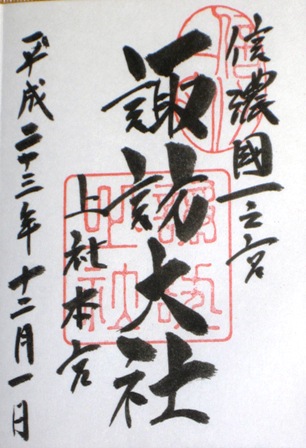 信濃國一之宮
諏訪大社
上社本宮
平成二十三年十二月一日